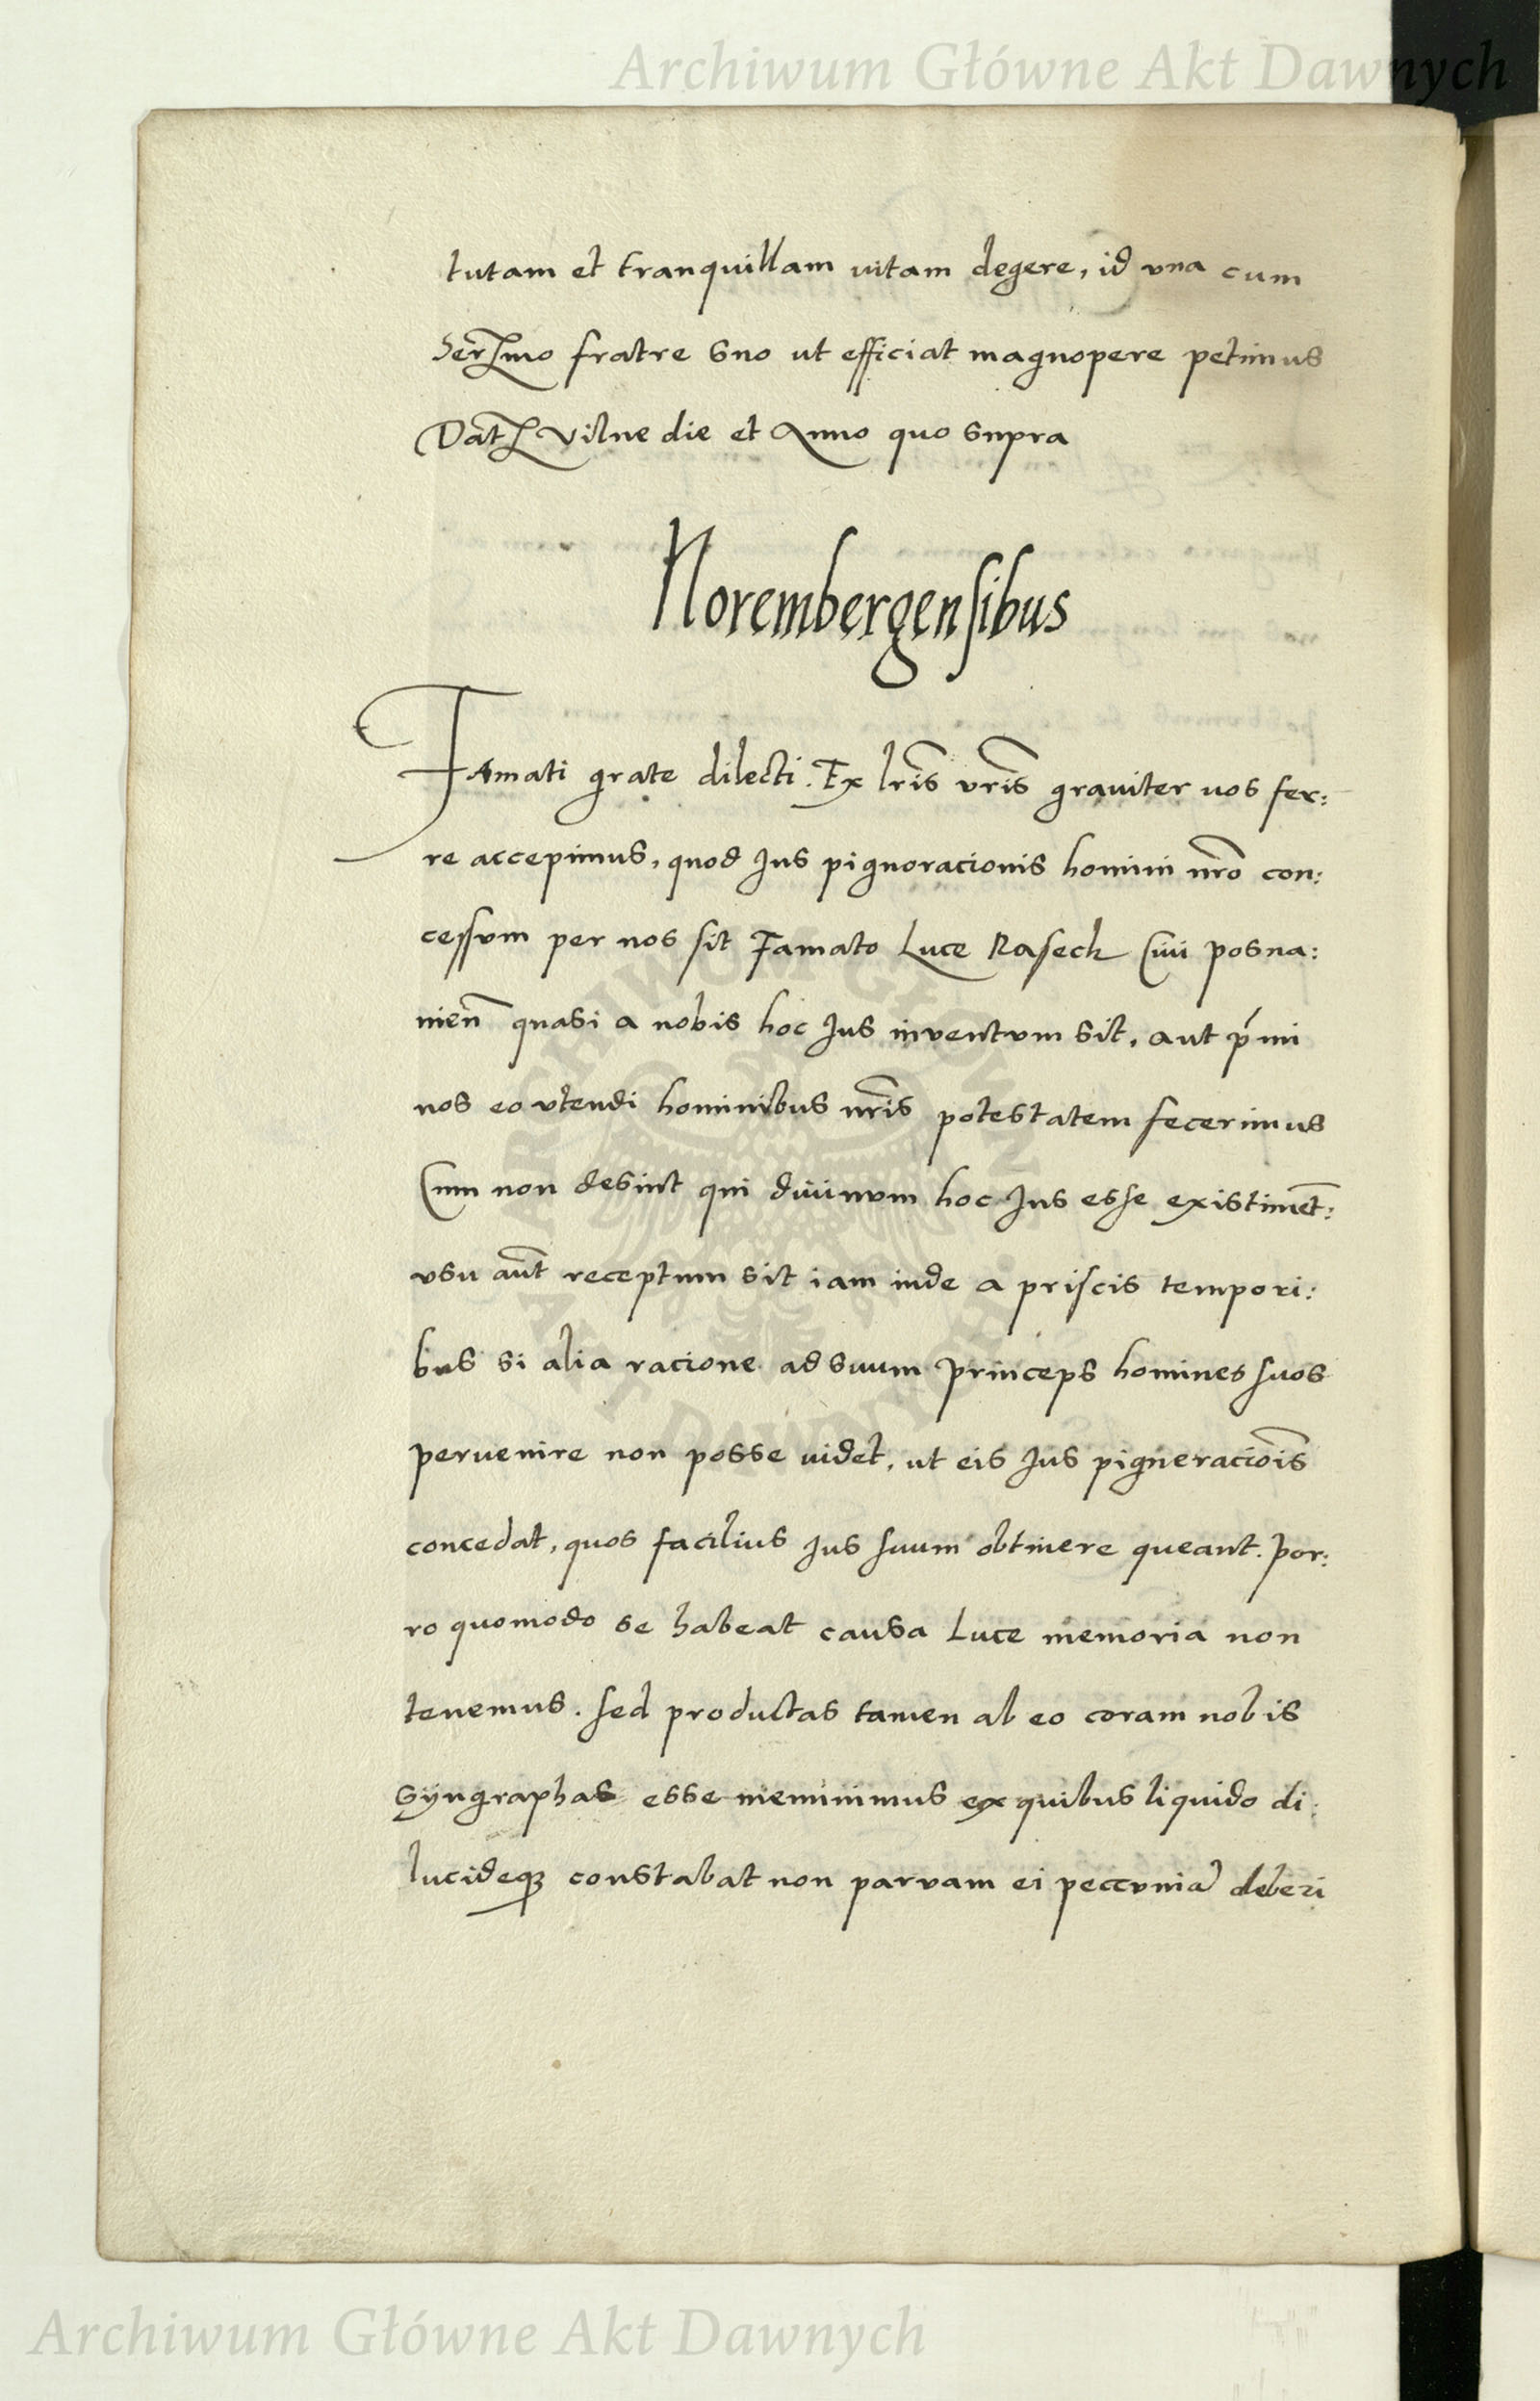 Archiwum Główne Akt Dawnych
tutam et tranquillam uitam degere, id vna cum
Serᷤmo fratre suo ut efficiat magnopere petimus
Datꝭ Vilne die et Anno quo supra
Norembergensibus
FAmati grate dilecti. Ex lr̃is vr̃is grauiter uos fer:
re accepimus, quod Jus pignoracionis homini nr̃o con:
cessvm per nos sit Famato Luce Raseck Ciui posna:
nien̄ quasi a nobis hoc Jus inventvm sit, aut ṕmi
nos eo vtendi hominibus nr̃is potestatem fecerimus
Cum non desint qui diuinvm hoc Jus esse existimēt:
vsu aūt receptum sit iam inde a priscis tempori:
bus si alia racione ad suum princeps homines suos
peruenire non posse uidet, ut eis Jus pigneraciōis
concedat, quos facilius Jus suum obtinere queant. Por:
ro quomodo se habeat causa Luce memoria non
tenemus. sed productas tamen ab eo coram nobis
syngraphas esse meminimus ex quibus liquido di:
lucideqꝫ constabat non parvam ei peccvniā deberi
ARCHIWUM GŁÓWNE AKT DAWNYCH
Archiwum Główne Akt Dawnych